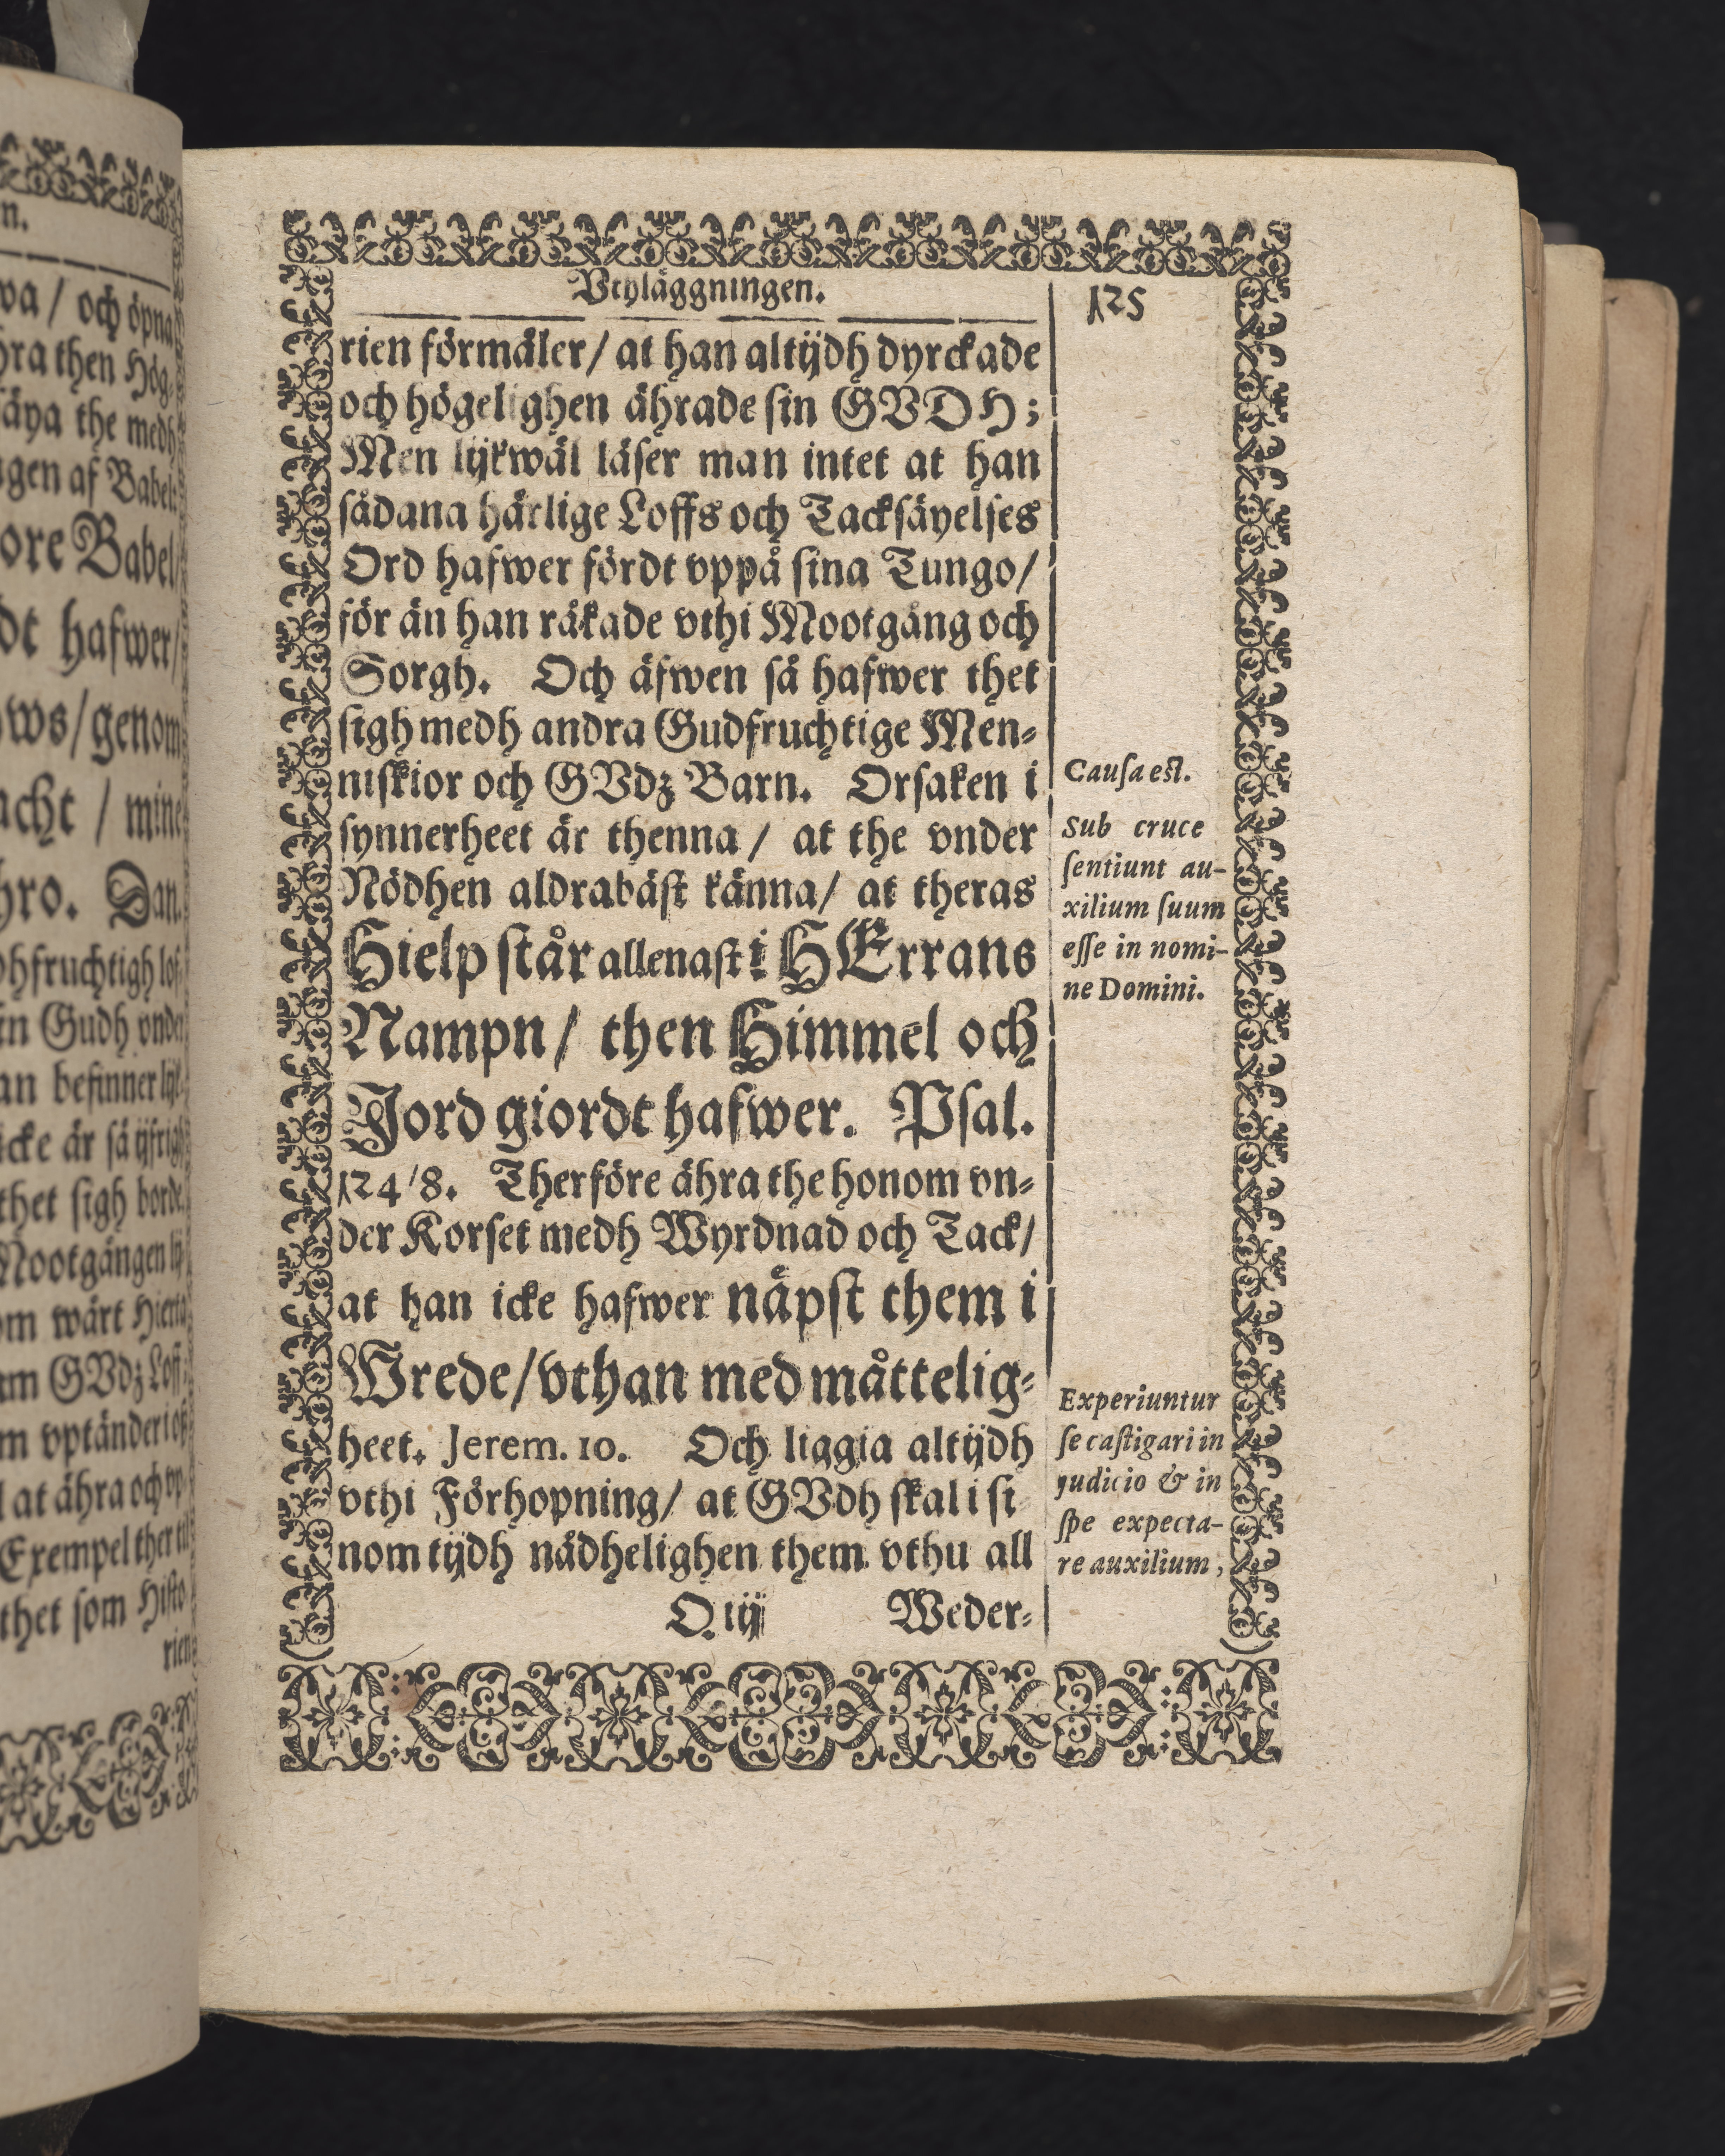 n.
wa / och öpna
hra then Hög-
säya the medh
ngen af Babel:
ore Babel/
dt hafwer/
ws/genom
acht / mine
hro. Dan.
dhfruchtigh lof-
in Gudh vnder
an befinner lijk-
icke är så ijfrigh
thet sigh borde.
Mootgången lij-
om wårt Hierta
um GVdz Loff;
m vptänder i oß
l at ähra och vp-
Exempel ther til
thet som Histo-
rien
Vthläggningen.
125
rien förmäler/ at han altijdh dyrckade
och högelighen ährade sin GVDH;
Men lijkwäl läser man intet at han
sådana härlige Loffs och Tacksäyelses
Ord hafwer fördt vppå sina Tungo/
för än han råkade vthi Mootgång och
Sorgh. Och äfwen så hafwer thet
sigh medh andra Gudfruchtige Men-
niskior och GVdz Barn. Orsaken i
synnerheet är thenna / at the vnder
Nödhen aldrabäst känna/ at theras
Hielp står allenast i HErrans
Nampn/ then Himmel och
Jord giordt hafwer. Psal.
124/8. Therföre ähra the honom vn-
der Korset medh Wyrdnad och Tack/
at han icke hafwer näpst them i
Wrede/vthan med måttelig-
heet. Jerem. 10. Och liggia altijdh
vthi Förhopning/ at GVdh skal i si
nom tijdh nådhelighen them vthu all
Q iij Weder-
Causa est.
Sub cruce
sentiunt au-
xilium suum
esse in nomi-
ne Domini.
Experiuntur
se castigari in
judicio & in
spe expecta-
re auxilium,